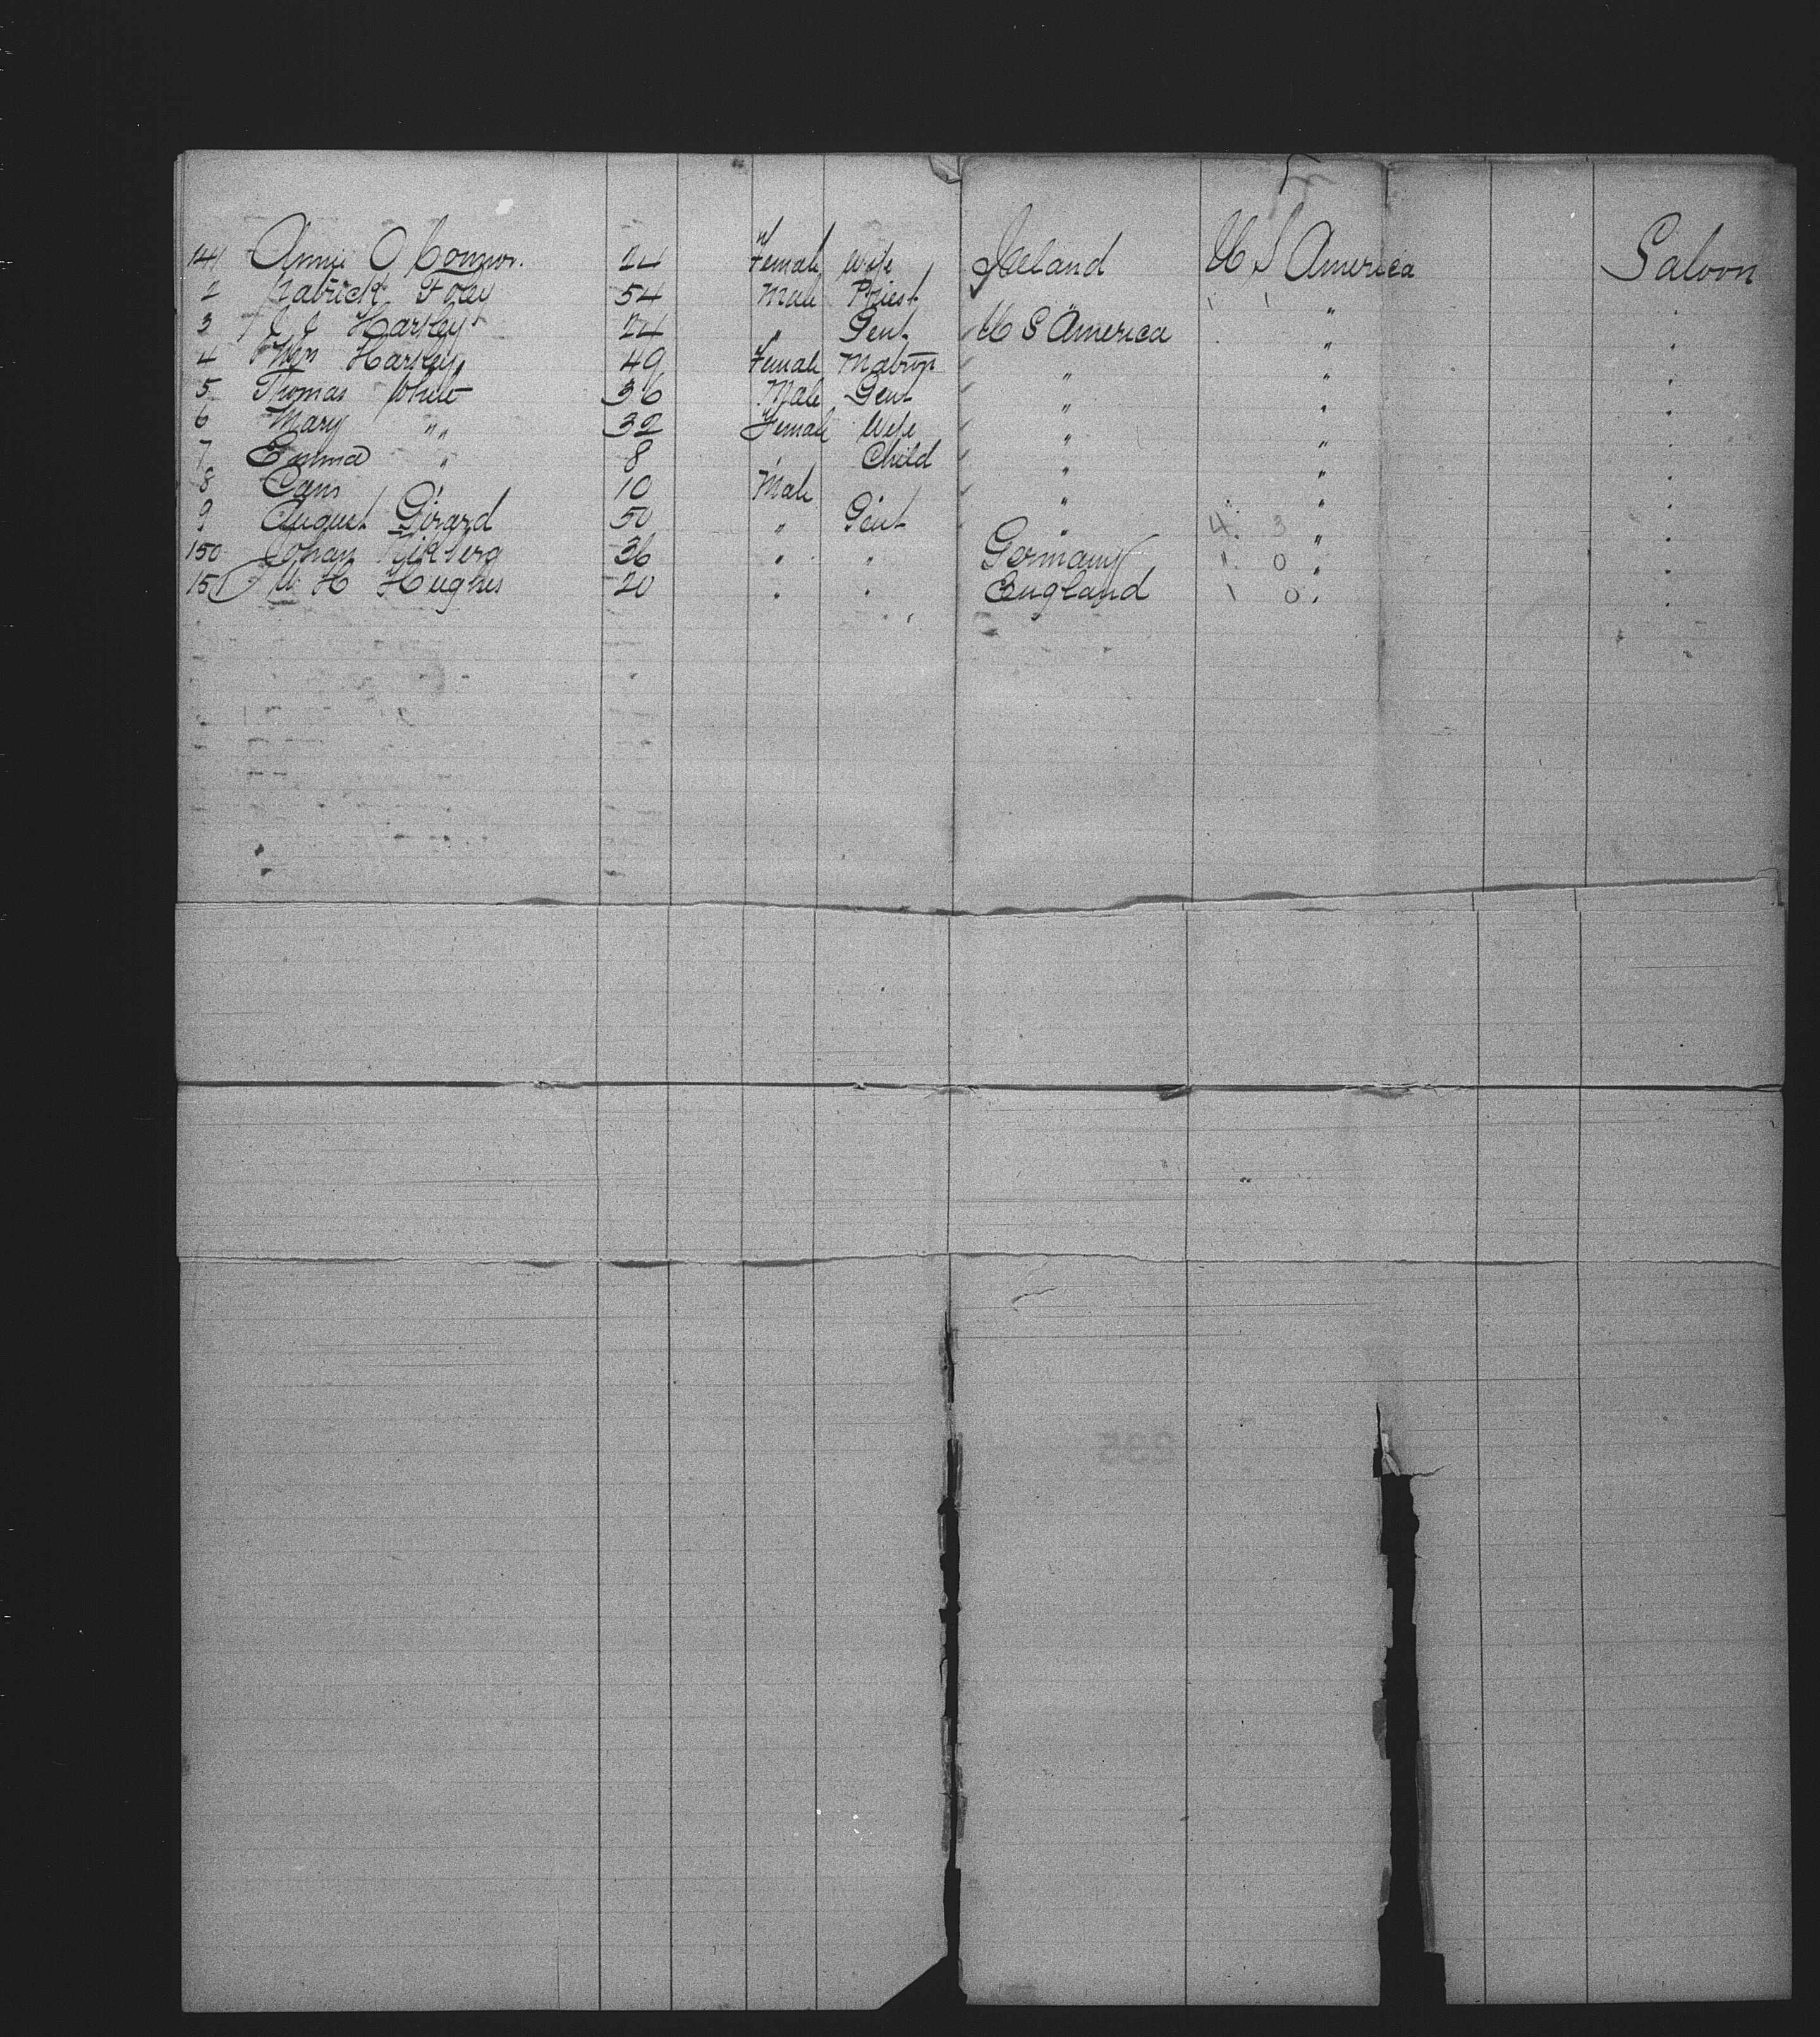 141 Annie O Connor. 24 Female Wife Ireland U S America Saloon
2 Patrick Foley 54 Male Priest 1 1 "
3 Harley 24 " Gent U S America "
4 Mrs Harley 49 Female Matron " "
5 Thomas White 36 Male Gent " "
6 Mary "" 32 Female Wife " "
7 Emma " 8 " Child " "
8 10 Male " " "
9 August Girard 50 " Gent " 4. 3 "
150 Johan 36 " " Germany 1. 0 "
151 W H Hughes 20 " " England 1 0 "
235